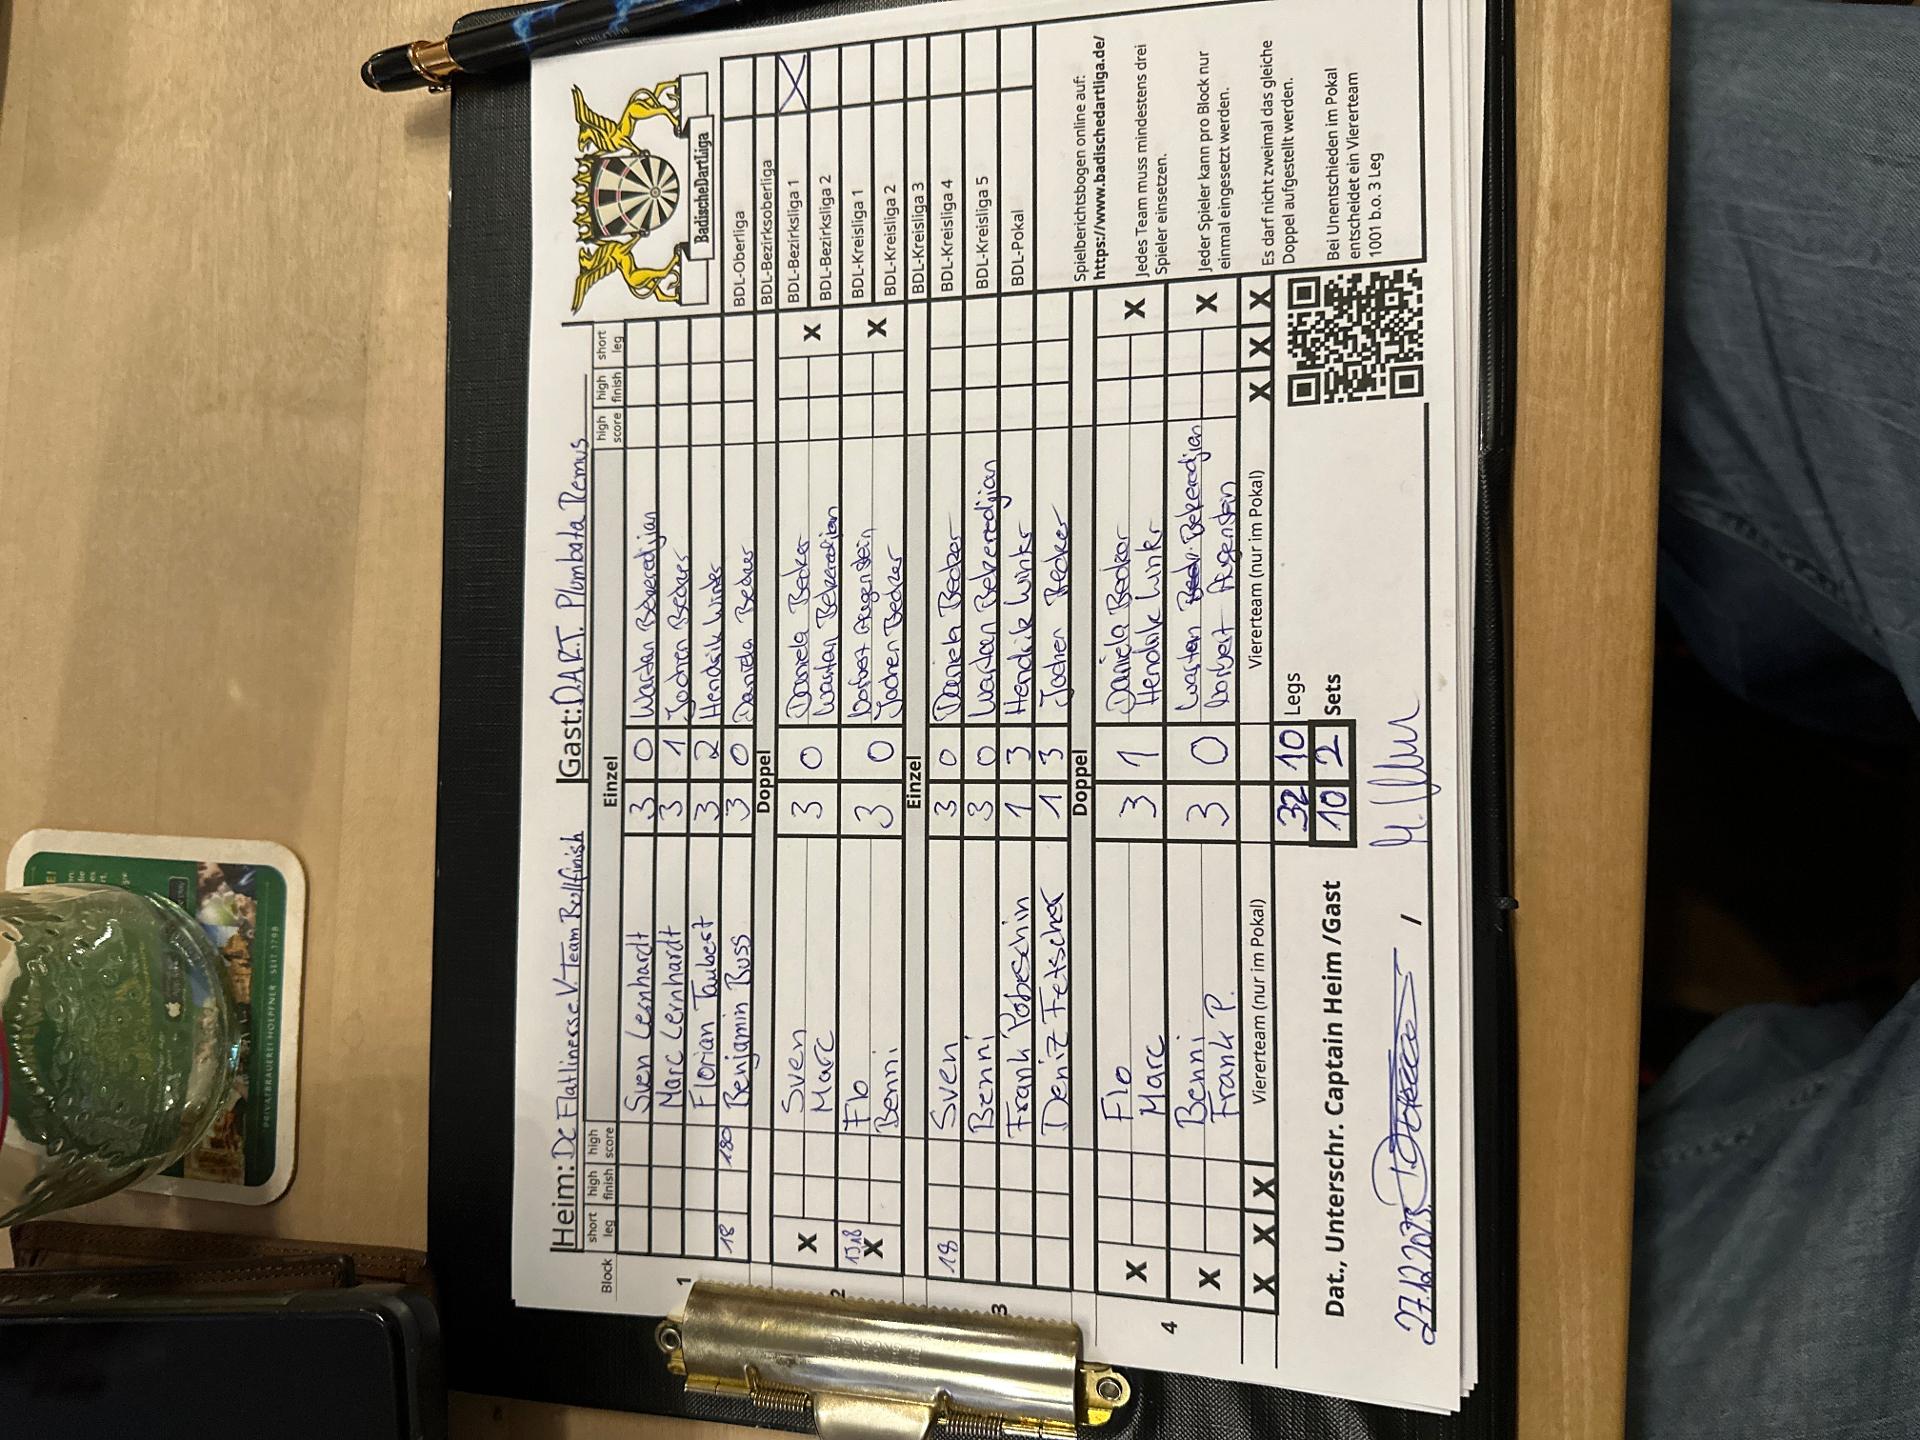 Heim: De Flatliners e.V. Team Bullfinish Gast: D.A.R.T. Plumbata Remus
Block short leg high finish high score Einzel high score high finish short leg
1
Sven Lernhardt 3 0 Wartan Bekeredjian
Marc Lernhardt 3 1 Jochen Becker
Florian Taubert 3 2 Hendrik Winkr
18 180 Benjamin Buss 3 0 Daniela Becker
Doppel
2
X Sven 3 0 Daniela Becker X
Marc Wartan Bekeredjian
X Flo 3 0 Norbert Augenstein X
Benni Jochen Becker
Einzel
3
18 Sven 3 0 Daniela Becker
Benni 3 0 Wartan Bekeredjian
Frank Pobeschin 1 3 Hendrik Winkr
Deniz Fetscher 1 3 Jochen Becker
Doppel
4
X Flo 3 1 Daniela Becker X
Marc Hendrik Winkr
X Benni 3 0 Wartan Bekeredjian X
Frank P. Norbert Augenstein
X X X Viererteam (nur im Pokal) Viererteam (nur im Pokal) X X X
32 10 Legs
Dat., Unterschr. Captain Heim /Gast 10 2 Sets
27.12.2023
BadischeDartLiga
BDL-Oberliga
BDL-Bezirksoberliga
BDL-Bezirksliga 1 X
BDL-Bezirksliga 2
BDL-Kreisliga 1
BDL-Kreisliga 2
BDL-Kreisliga 3
BDL-Kreisliga 4
BDL-Kreisliga 5
BDL-Pokal
Spielberichtsbogen online auf:
https://www.badischedartliga.de/
Jedes Team muss mindestens drei
Spieler einsetzen.
Jeder Spieler kann pro Block nur
einmal eingesetzt werden.
Es darf nicht zweimal das gleiche
Doppel aufgestellt werden.
Bei Unentschieden im Pokal
entscheidet ein Viererteam
1001 b.o. 3 Leg
PRIVATBRAUEREI HOEPFNER · SEIT 1798